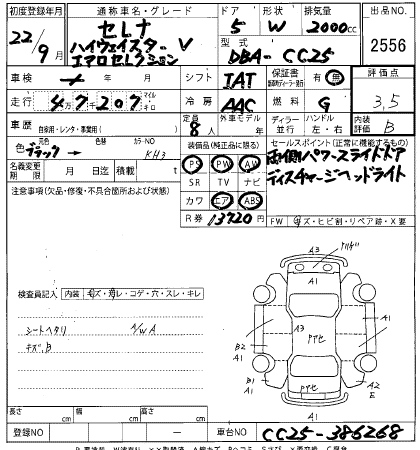 初度登録年月 通称車名・グレード ドア 形状 排気量 出品NO
22/9月 セレナ ハイウェイスターV エアロセレクション 5 W 2000cc 2556
型式 DBA-CC25
車検 年 月 シフト IAT 保証書 有 無 評価点
走行 47207 マイル キロ 冷房 AAC 燃料 G 3,5
車歴 自家用・レンタ・事業用( ) 定員 8人 外車モデル ディーラー 並行 ハンドル 左・右 内装評価 B
色 元色 ブラック→ 色替 カラーNO KH3 装備品(純正品に限る) セールスポイント(正常に機能する)
名義変更期限 月 日迄 積載 t PS PW AW 両側パワースライドドア
注意事項(欠品・修復・不具合箇所および状態) SR TV ナビ ディスチャージヘッドライト
カワ エアB ABS
R券 13720円 FW キズ・ヒビ割・リペア跡・X要
A3
A1
検査員記入 内装 キズ・汚レ・コゲ・穴・スレ・キレ
シートヘタリ A/WA
キズ,B
A3
A1
B2
A1
B1
A1
A2
E
A1
長さ cm 幅 cm 高さ cm
登録NO ― 車台NO CC25-386268